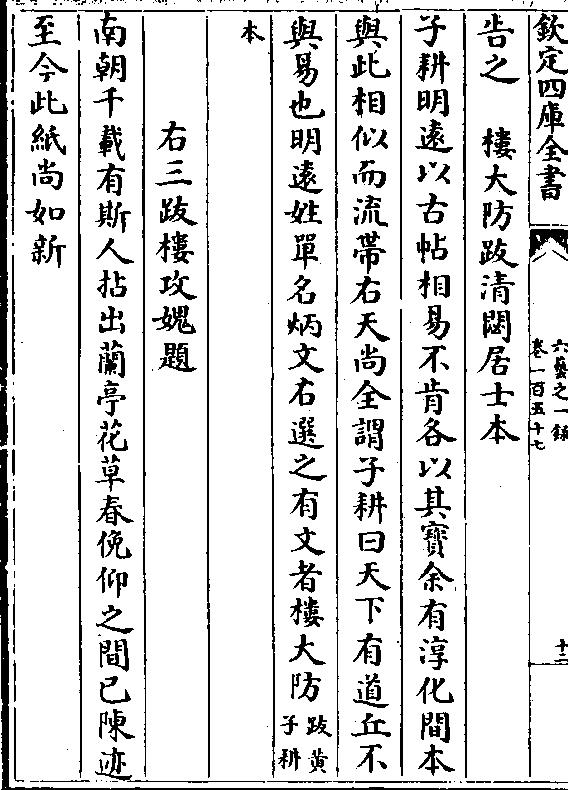 欽定四庫全書
六藝之一錄
卷一百五十七
十二
告之　樓大防跋清閟居士本
子耕明遠以古帖相易不肯各以其寳余有淳化間本
與此相似而流帶右天尚全謂子耕曰天下有道丘不
與易也明遠姓單名炳文右選之有文者樓大防跋黃子耕
本
右三跋樓攻媿題
南朝千載有斯人拈出蘭亭花草春俛仰之間已陳迹
至今此紙尚如新